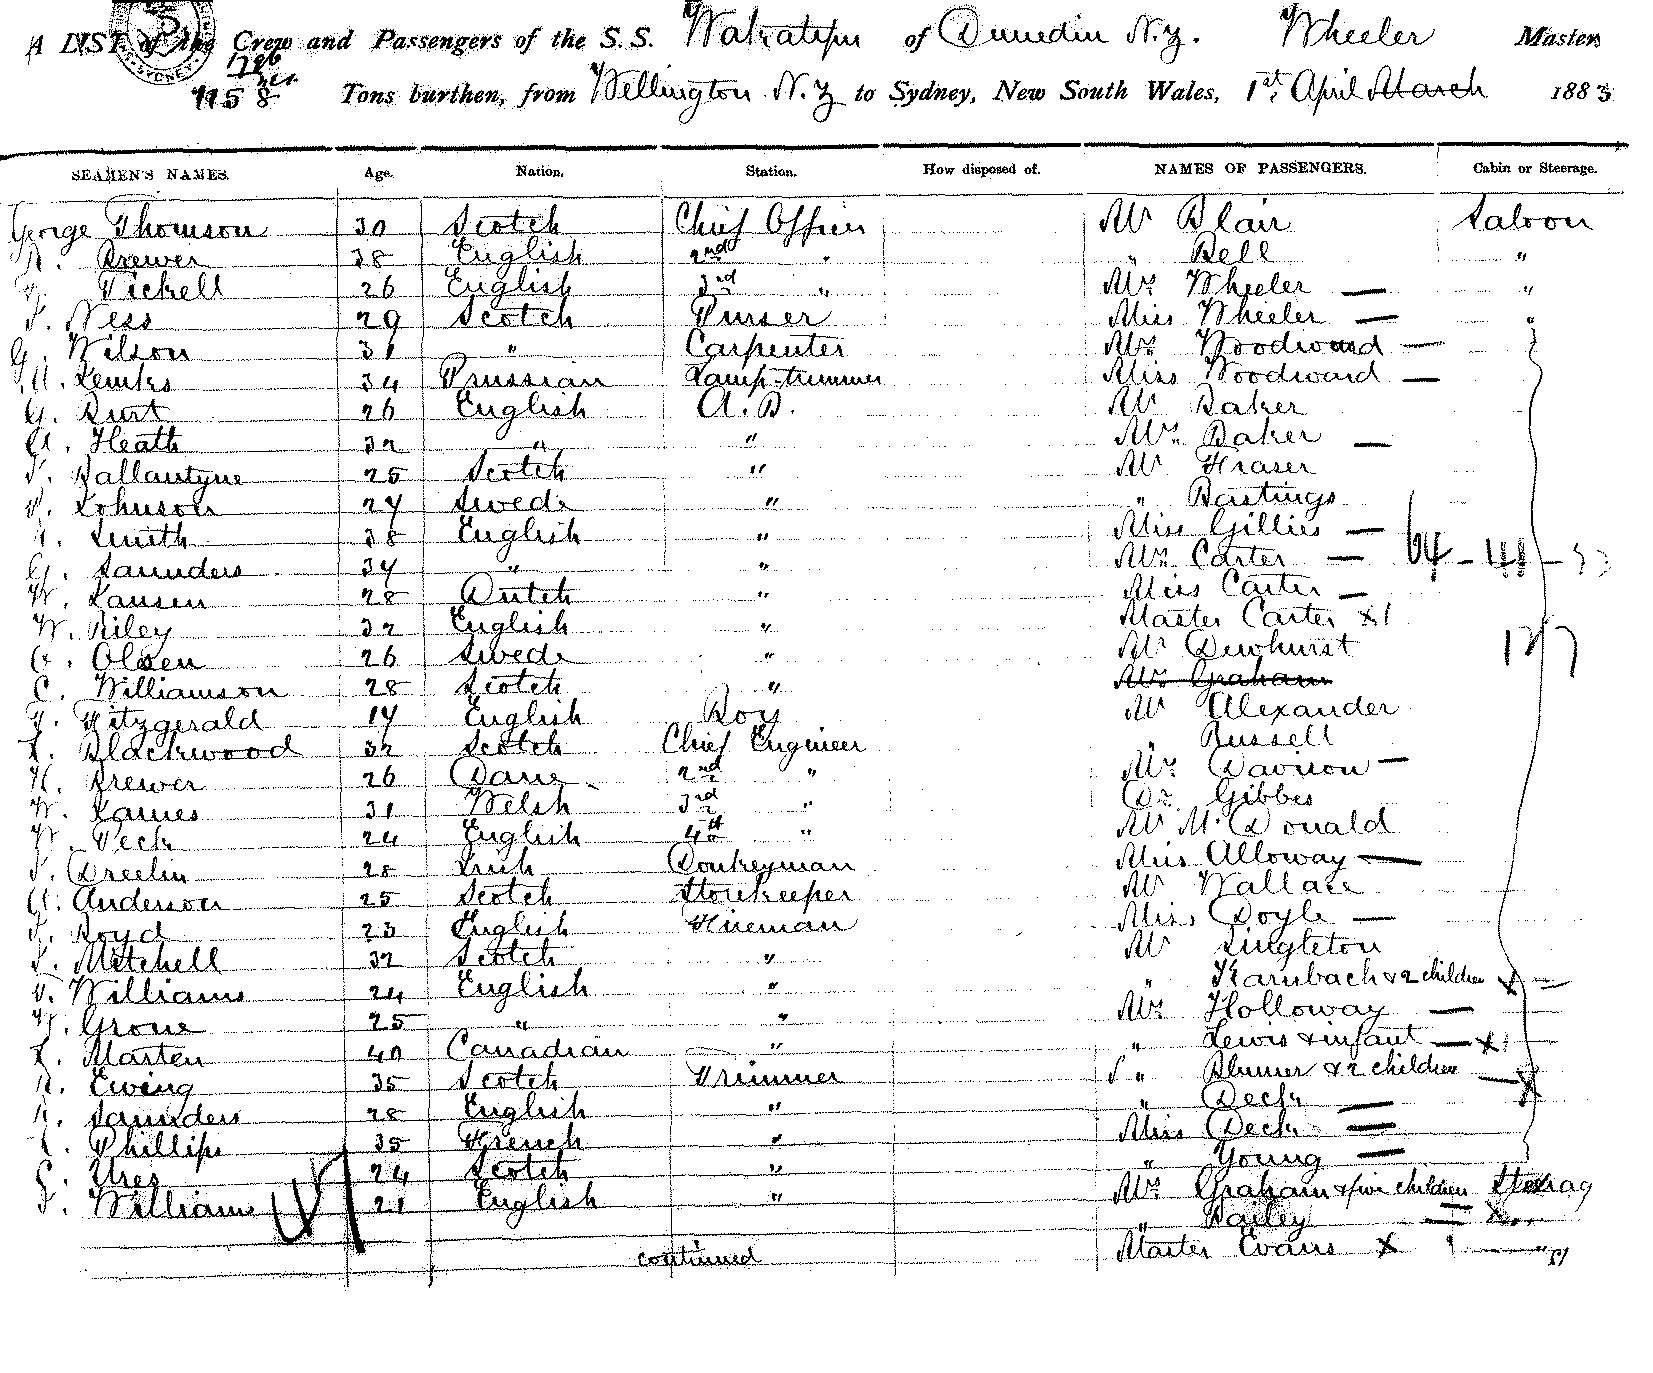 A LIST of the Crew and Passengers of the S.S. Wakatipu of Dunedin N.Z. Wheeler Master
1158 Tons burthen, from Wellington N.Z to Sydney, New South Wales, 1st April March 1883
SEAMEN'S NAMES. Age. Nation. Station. How disposed of. NAMES OF PASSENGERS. Cabin or Steerage.
George Thomson 30 Scotch Chief Officer Mr Blair Saloon
Brewer 38 English 2nd " " Bell "
Pickell 26 English 3rd " Mrs Wheeler — "
Ness 29 Scotch Purser Miss Wheeler — "
G. Wilson 31 " Carpenter Mrs Woodward —
Lemks 34 Prussian Lamp-trimmer Miss Woodward —
G. Burt 26 English A.B. Mr Baker
Heath 32 " " Mrs Baker —
Ballantyne 25 Scotch " Mr Fraser
Johnson 24 Swede " " Bastings
Smith 38 English " Miss Gillies —
G. Saunders 34 " " Mrs Carter — 64 - 41 -
W. Jansen 28 Dutch " Miss Carter —
W. Riley 32 English " Master Carter x 1
Olsen 26 Swede " Mr Dewhurst
C. Williamson 28 Scotch " Mrs Graham
Fitzgerald 14 English Boy Mr Alexander
Blackwood 32 Scotch Chief Engineer " Russell
H. Brewer 26 Dane 2nd " Mrs Davison —
W. James 31 Welsh 3rd " Dr Gibbes
W. Peck 24 English 4th " Mr McDonald
Dreelin 28 Irish Donkeyman Miss Alloway —
A. Anderson 25 Scotch Storekeeper Mr Wallace
Boyd 23 English Fireman Miss Doyle —
Mitchell 32 Scotch " Mr Singleton
Williams 24 English " " Karnbach & 2 children x
Grone 25 " " Mrs Holloway —
Marten 40 Canadian " " Lewis & infant — x 1
Ewing 35 Scotch Trimmer " Blumer & 2 children — x
Saunders 28 English " " Deck —
Phillips 35 French " Miss Deck —
Ures 24 Scotch " " Young —
Williams 21 English " Mrs Graham & five children Steerag
" Bailey —
continued Master Evans x 1 "